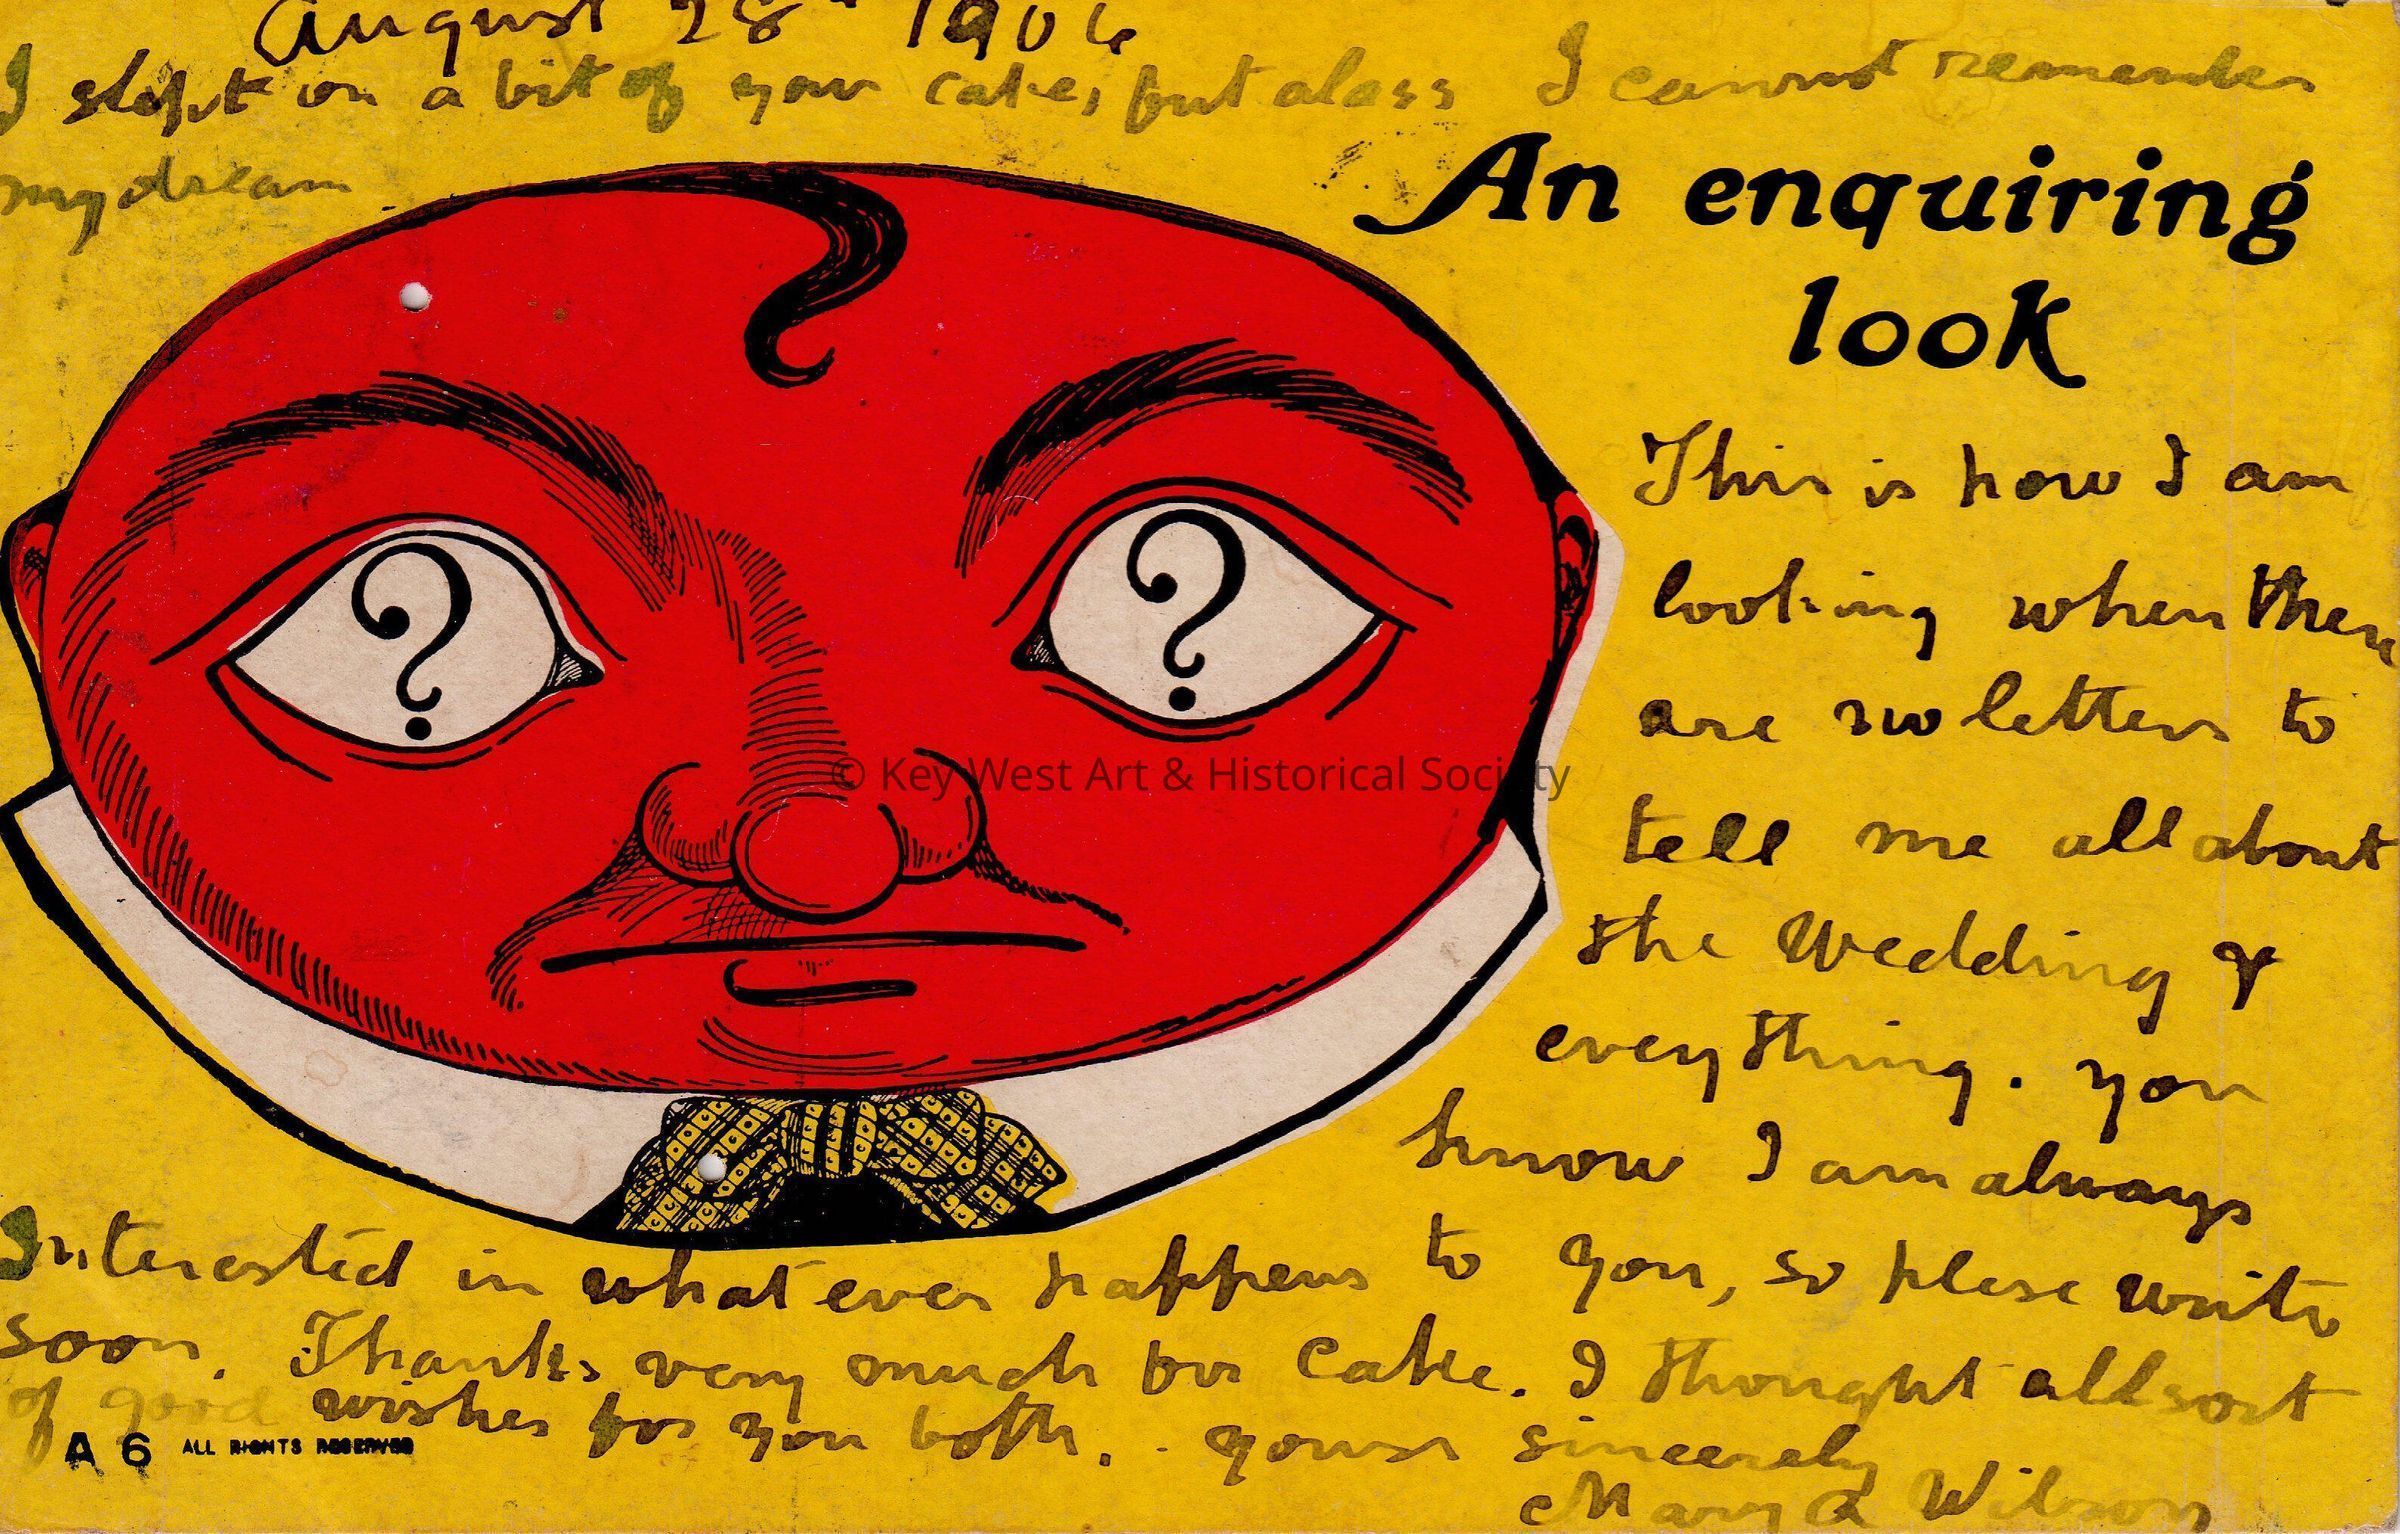 August 28th 1906
I slept on a bit of your cake, but alass I cannot remember
my dream
An enquiring
look
This is how I am
looking when there
are no letters to
tell me all about
the Wedding &
everything. you
know I am always
Interested in what ever happens to you, so plese write
soon. Thanks very much for Cake. I thought all sort
of good wishes for you both. yours sincerely
Mary A Wilson
A 6 ALL RIGHTS RESERVED
© Key West Art & Historical Society